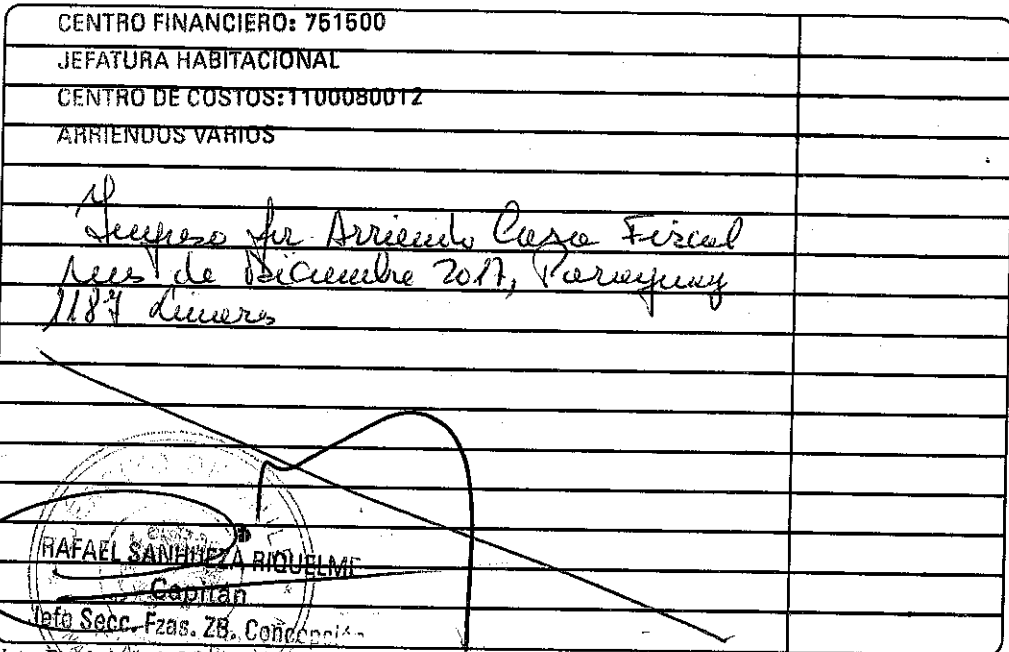 CENTRO FINANCIERO: 751500
JEFATURA HABITACIONAL
CENTRO DE COSTOS:1100080012
ARRIENDOS VARIOS
Ingreso por Arriendo Casa Fiscal
mes de Diciembre 2017, Paraguay
1187 Linares
RAFAEL SANHUEZA RIQUELME
Capitán
Jefe Secc. Fzas. ZB. Concepción